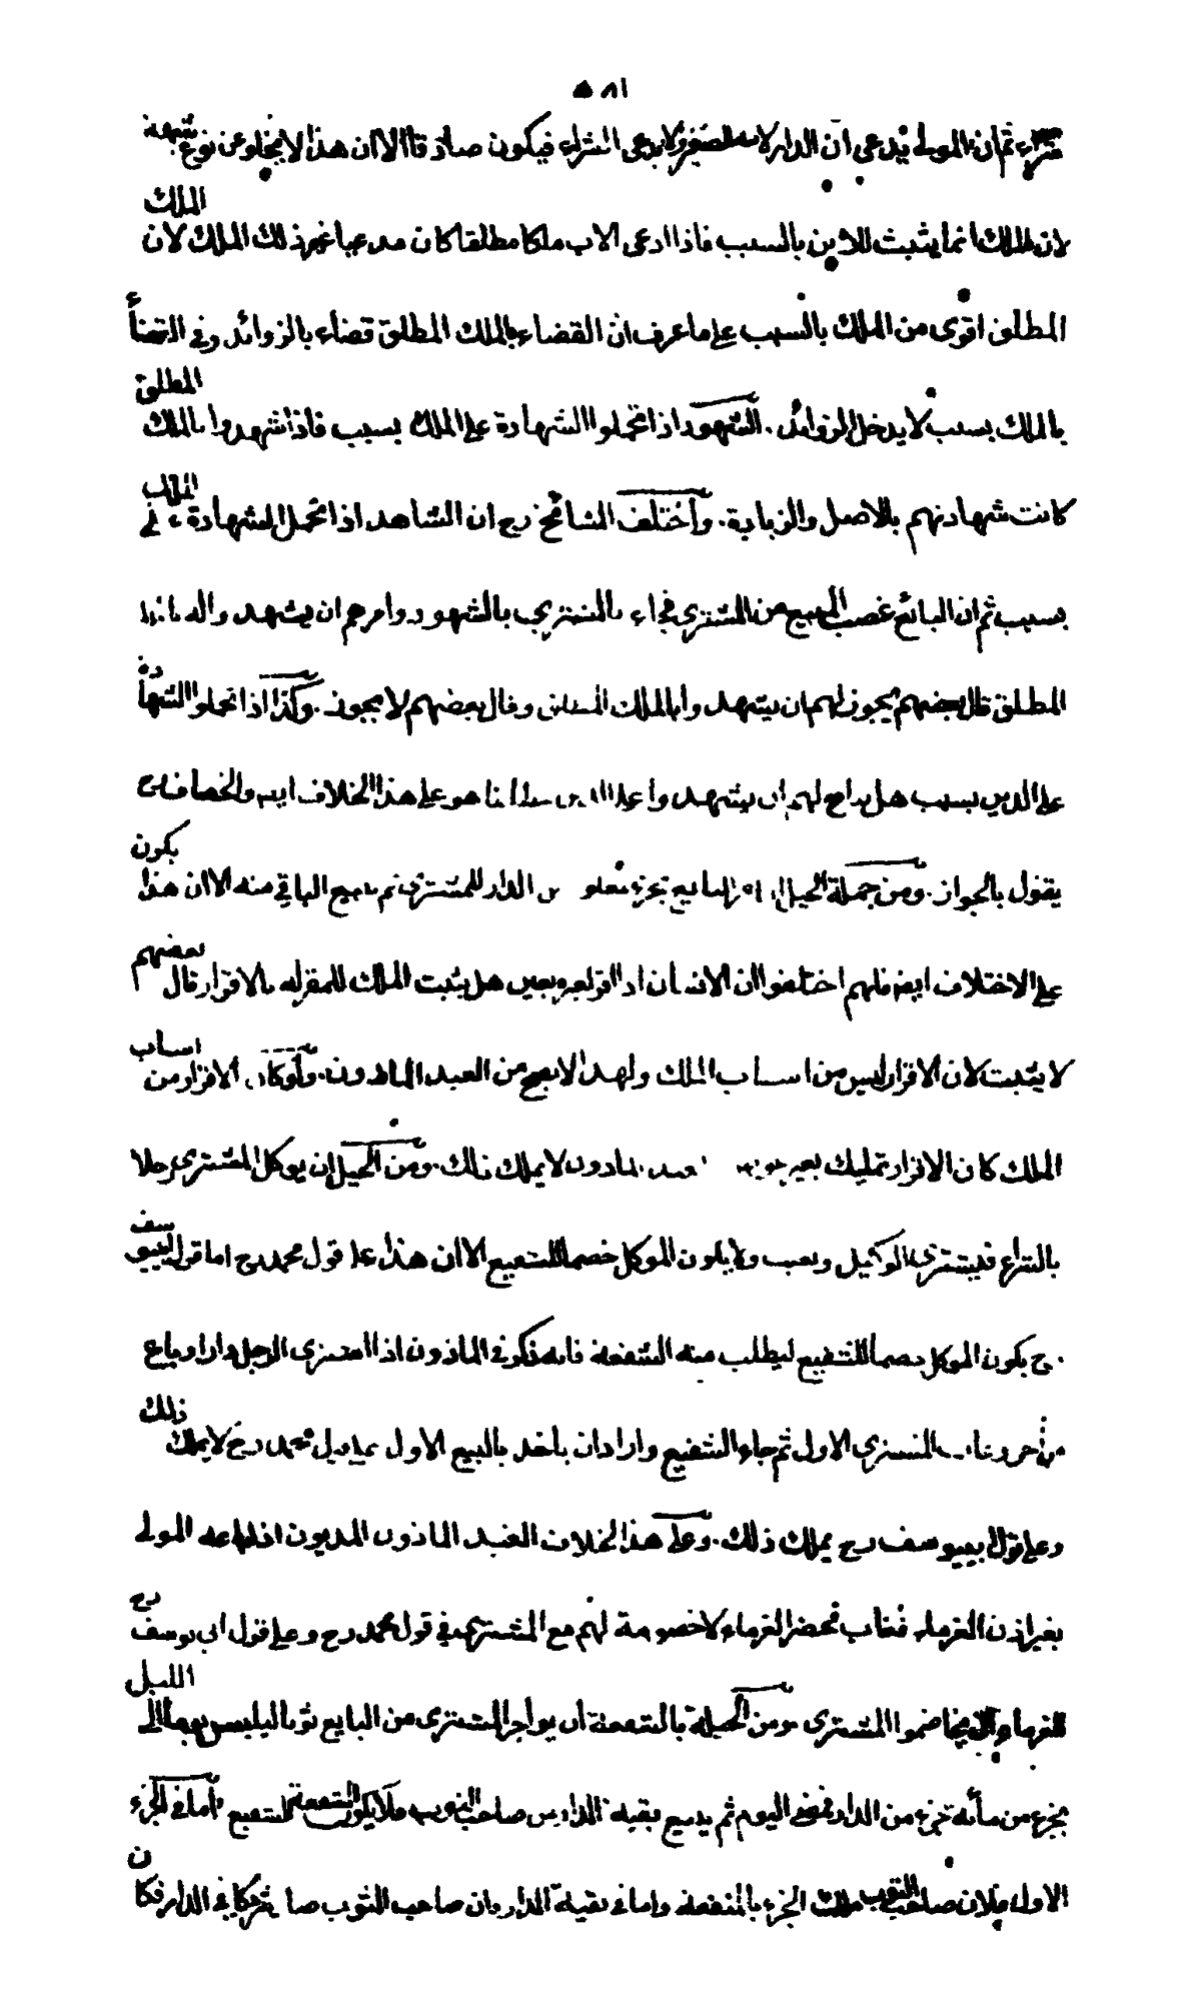 ٥٨١
شراء ثم ان المولى يدعى ان الدار لابنه الصغير ولا يدعى الشراء فيكون صادقا الا ان هذا لا يخلو عن نوع شبهة
لان الملك انما يثبت للابن بالسبب فاذا ادعى الاب ملكا مطلقا كان مدعيا غير ذلك الملك لان الملك
المطلق اقوى من الملك بالسبب على ما عرف ان القضاء بالملك المطلق قضاء بالزوائد وفى القضأ
بالملك بسبب لا يدخل الزوائد . الشهود اذا تحملوا الشهادة على الملك بسبب فاذا شهدوا بالملك المطلق
كانت شهادتهم بالاصل والزيادة . واختلف المشائخ رح ان الشاهد اذا تحمل الشهادة فى الملك
بسبب ثم ان البائع غصب المبيع من المشترى فجاء المشترى بالشهود وامرهم ان يشهدوا له
المطلق قال بعضهم يجوز لهم ان يشهدوا بالملك المطلق وقال بعضهم لا يجوز . وكذا اذا تحملوا الشهادة
على الدين بسبب هل يباح لهم ان يشهدوا هو على هذا الخلاف ايضا والخصاف رح
يقول بالجواز . ومن جملة الحيل ان البايع بجزء من الدار للمشترى ثم يبيع الباقى منه الا ان هذا يكون
على الاختلاف ايضا فانهم اختلفوا ان الانسان اذا اقر لغيره بعين هل يثبت الملك للمقر له بالاقرار قال بعضهم
لا يثبت لان الاقرار ليس من اسباب الملك ولهذا لا يصح من العبد الماذون . ولو كان الاقرار من اسباب
الملك كان الاقرار تمليك بغير الماذون لا يملك ذلك . ومن الحيل ان يوكل المشترى رجلا
بالشراء فيشترى الوكيل ويغيب ولا يكون الموكل خصما للشفيع الا ان هذا على قول محمد رح اما قول ابييوسف
رح يكون الموكل خصما للشفيع ليطلب منه الشفعة فانه ذكر فى الماذون اذا اشترى الرجل دارا وباع
من آخر المشترى الاول ثم جاء الشفيع واراد ان ياخذ بالبيع الاول محمد رح لا يملك ذلك
وعلى قول ابييوسف رح يملك ذلك . وعلى هذا الخلاف العبد الماذون المديون اذا باعه المولى
بغير اذن الغرماء فغاب فحضر الغرماء لا خصومة لهم مع المشترى فى قول محمد رح وعلى قول ابى يوسف رح
للغرماء ان يخاصموا المشترى ومن الحيلة بالشفعة ان يواجر المشترى من البايع ثوبا ليلبس يوما الى الليل
بجزء من مأئة جزء من الدار فمضى اليوم ثم يبيع بقية الدار من صاحب الثوب فلا يكون الشفعة للشفيع اما فى الجزء
الاول فلان صاحب الثوب ملك الجزء بالمنفعة واما فى بقية الدار فان صاحب الثوب صار شريكا فى الدار فكان